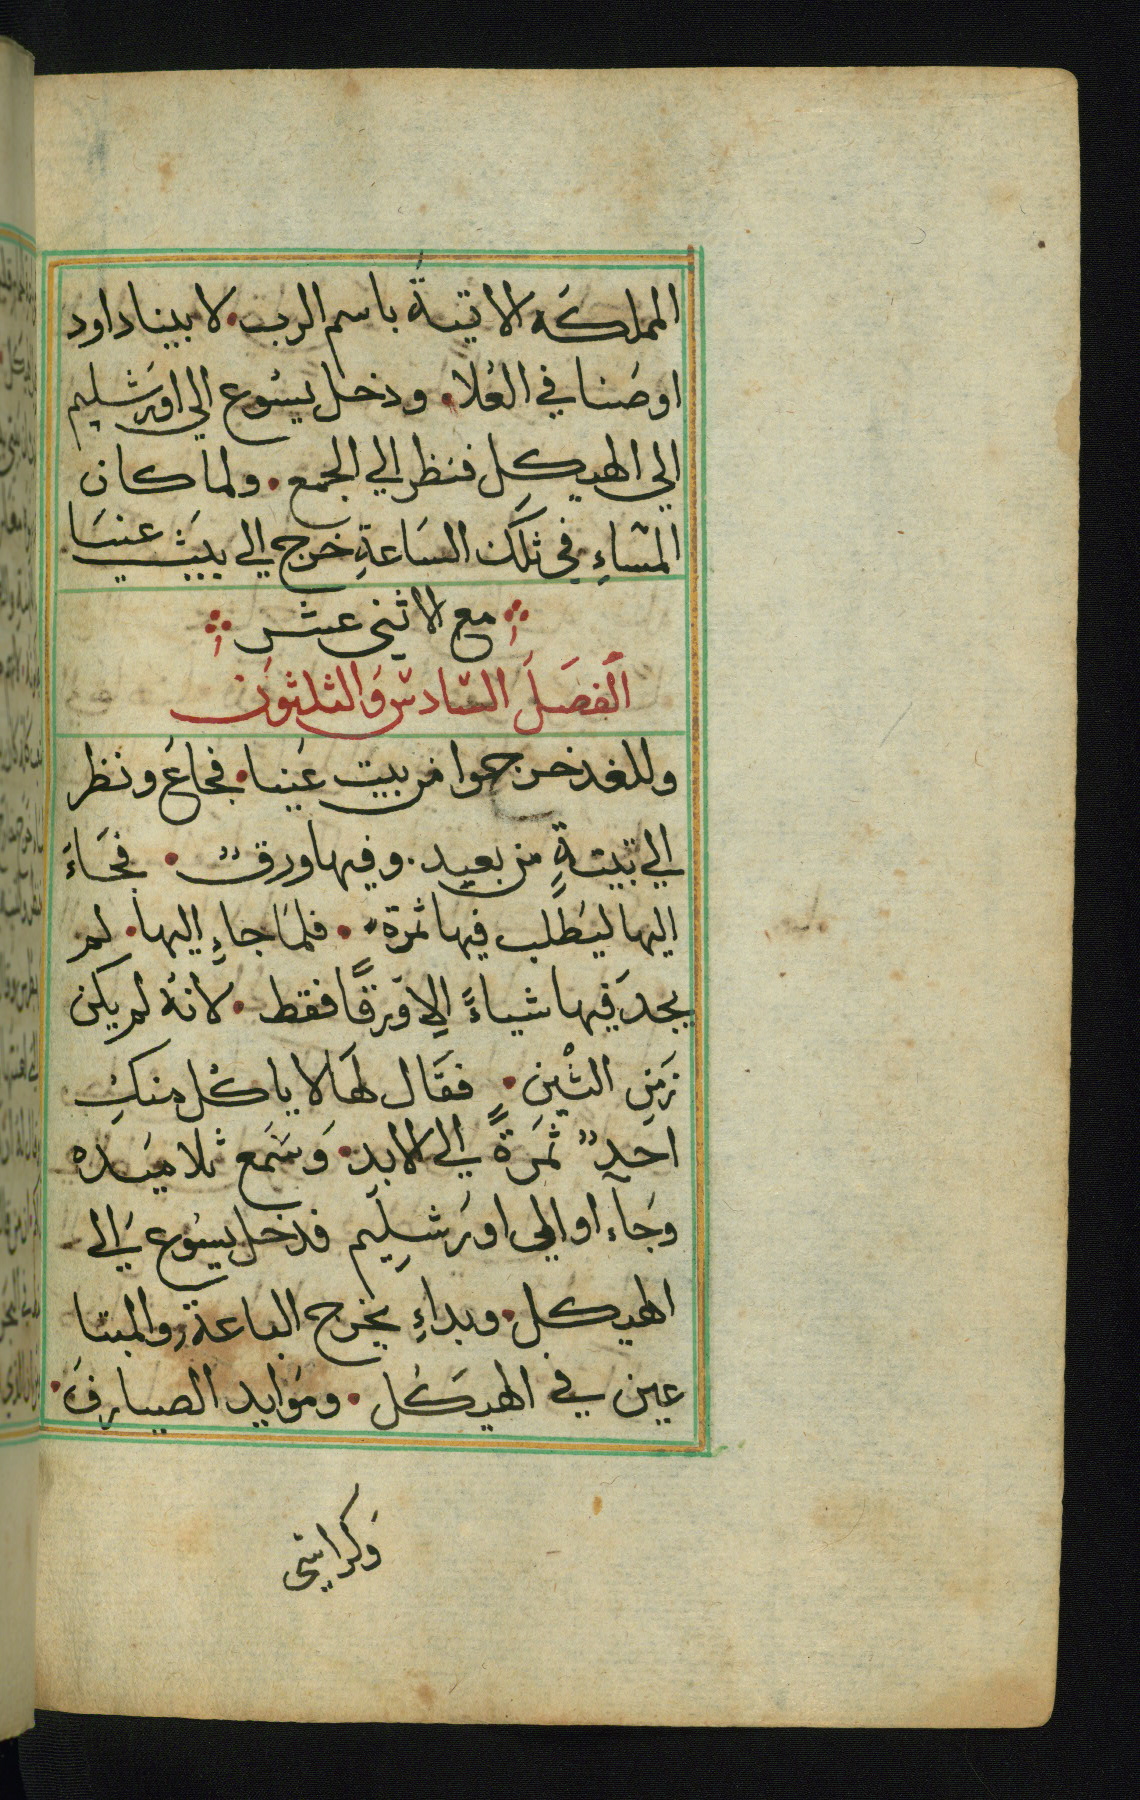 المملكة الاتية باسم الرب لابينا داود
اوصَنا في العُلا ودخل يسُوع الي اورَشليم
الي الهيكل فنظر الي الجمع ولما كان
المسَاءِ في تلكَ السَاعةِ خرج الي بيت عنيَا
مع الاثني عشر
الفصَل السَادسَ وَالثلثون
وللغد خرجوا من بيت عَنيا فجاعَ ونظر
الي تينةٍ من بعيد وفيها ورق فجَاءَ
اليها ليَطلب فيها ثمرة فلمَا جاءِ اليها لم
يجدَ فيها شياءً الِا وَرقًا فقط لانهُ لم يكن
زمَنِ التْين فقَال لهَا لا ياكْل منكِ
احد ثمَرَةً الي الابد وَسَمع تلاميَده
وَجَآءاو الي اورَشلِيم فدخل يسُوع الَي
الهيكل وبداءِ يخرج الباعةِ والمبتا
عين في الهيكَل ومَوايد الصيارفَ
وَكراسي